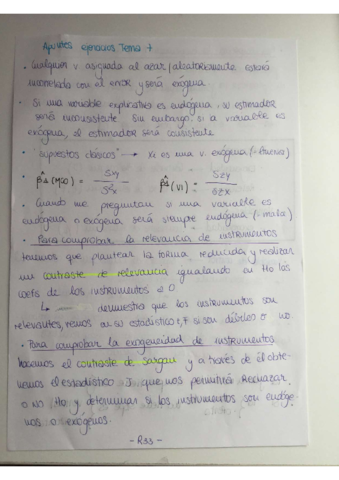 Apuntes ejercicios Tema 7
• Cualquier v. asignada al azar/aleatoriamente estará
incorrelada con el error y será exógena
• Si una variable explicativa es endógena, su estimador
será inconsistente. Sin embargo, si la variable es
exógena, el estimador será consistente
• "supuestos clásicos" → Xi es una v. exógena (=buena)
β̂1 (MCO) = Sxy / S²x    β̂1 (VI) = Szy / Szx
• Cuando me preguntan si una variable es
endógena o exógena será siempre endógena (=mala)
• Para comprobar la relevancia de instrumentos
tenemos que plantear la forma reducida y realizar
un contraste de relevancia igualando en Ho los
coefs de los instrumentos a 0
↳ demuestra que los instrumentos son
relevantes, vemos así su estadístico F, si son débiles o no
• Para comprobar la exogeneidad de instrumentos
hacemos el contraste de Sargan y a través de él obte-
nemos el estadístico J que nos permitirá Rechazar
o no Ho y determinar si los instrumentos son endóge-
nos o exógenos.
- R33 -